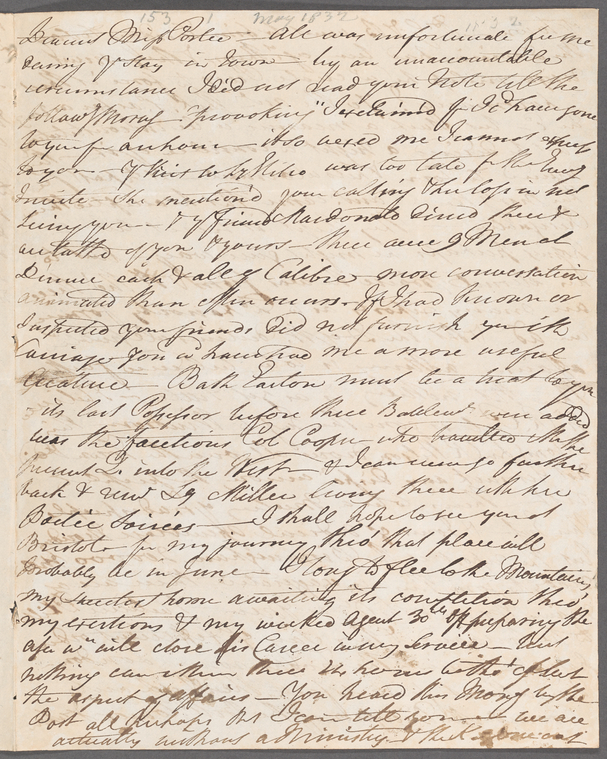 153 1 May 1832 1832
Dearest Miss Porter – All was unfortunate for me
during yr stay in Town – by an unaccountable
circumstance I did not read your Note till the
followg Morng – "provoking" I exclaimed for I cd have gone
to you for an hour – it so vexed me I cannot
to you – was too late for the Eveng
Invite She mention'd your calling & her loss in not
seeing you – & yr friend Macdonald dined there &
we talk'd of you & yours – there were 9 Men at
Dinner each & all of Calibre more conversation
animated than often occurs. If I had known or
suspected your friends did not furnish you with
Carriage you wd have had me a more useful
creature – Bath Easton must be a treat to you
– its last Possessor before three were added
was the facetious Col Cooper – who
present into the West – & I can even go further
back & remr Ly Miller living there with her
Poetic Soirées – I shall hope to see you at
Bristol – for my journey thro' that place will
probably be in June – I long to flee to the Mountains,
my sweetest home awaiting its completion thro'
my exertions & my worked Agent 30th of preparing the
will close his Career in my Service – but
nothing can
the aspect of affairs – You heard this Morng by the
Post all perhaps that I can tell you – we are
actually without a Ministry &